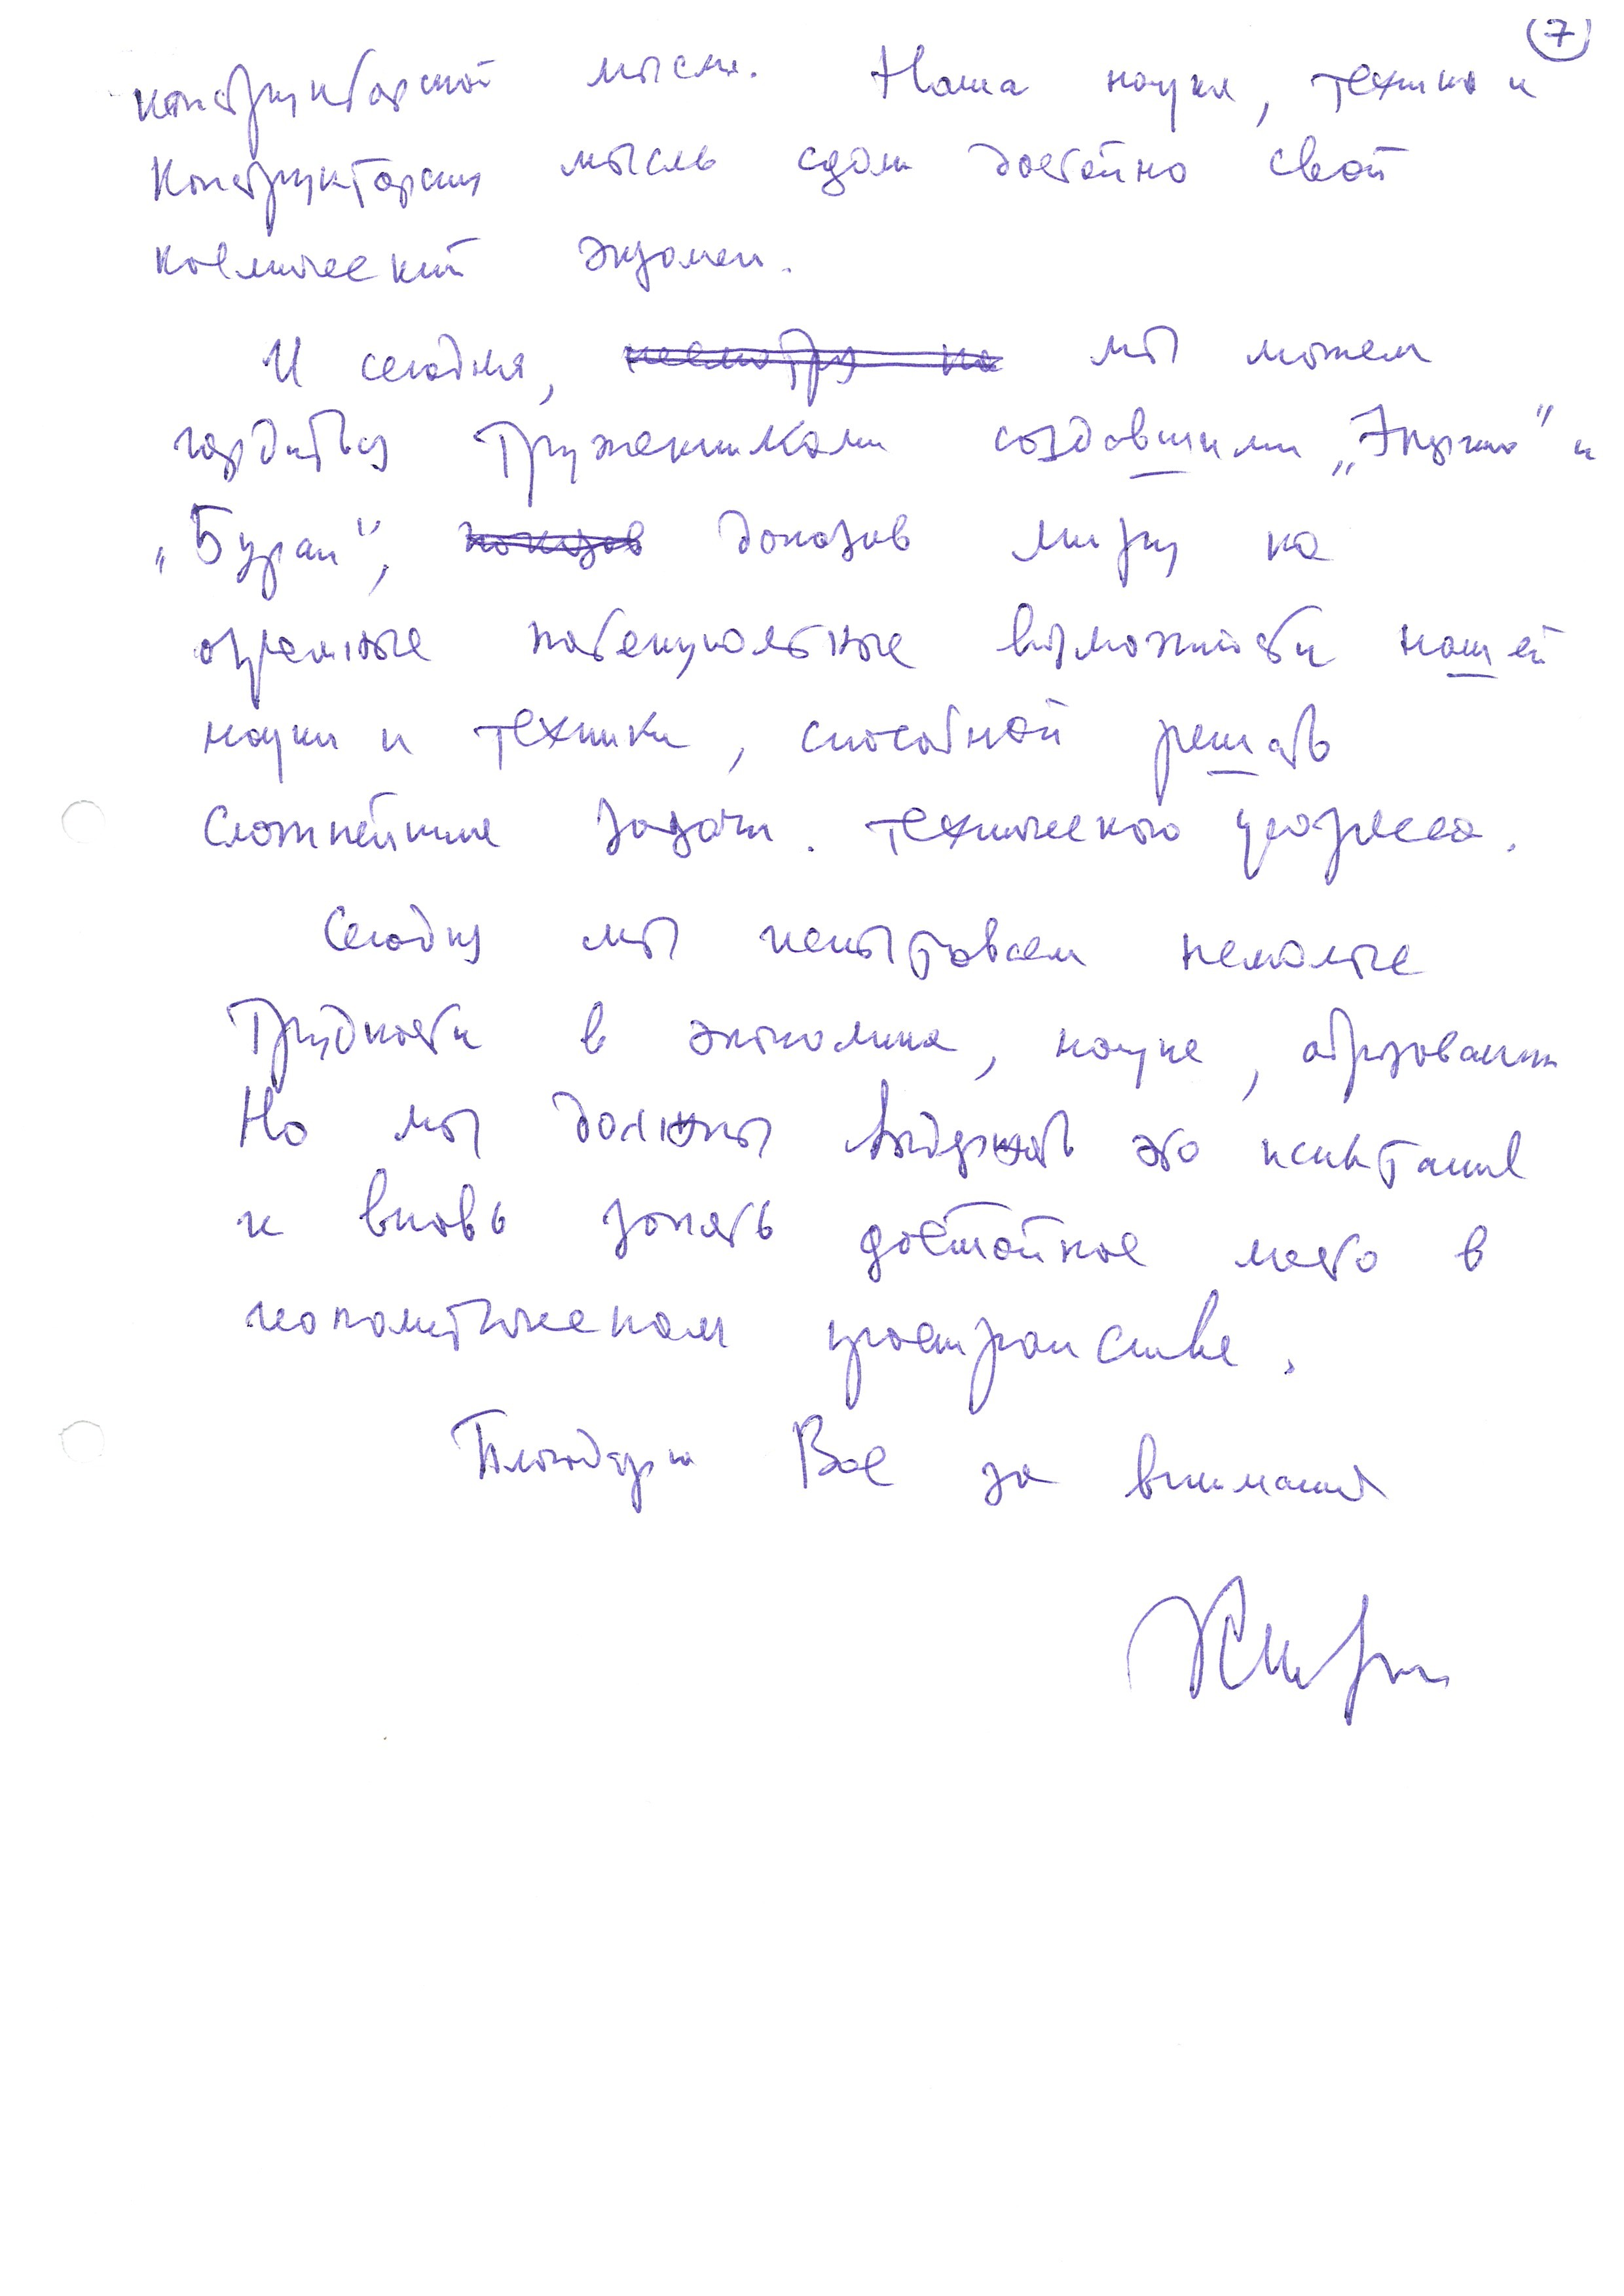 7
конструкторской мысли. Наша наука, техника и
конструкторская мысль сдали достойно свой
космический экзамен.
И сегодня, несмотря на мы можем
гордиться тружениками создавшими „Энергию" и
„Буран", показав доказав миру на
огромные потенциальные возможности нашей
науки и техники, способной решать
сложнейшие задачи. технического прогресса.
Сегодня мы испытываем немалые
трудности в экономике, науке, образовании
Но мы должны выдержать это испытание
и вновь занять достойное место в
геополитическом пространстве.
Благодарю Вас за внимание